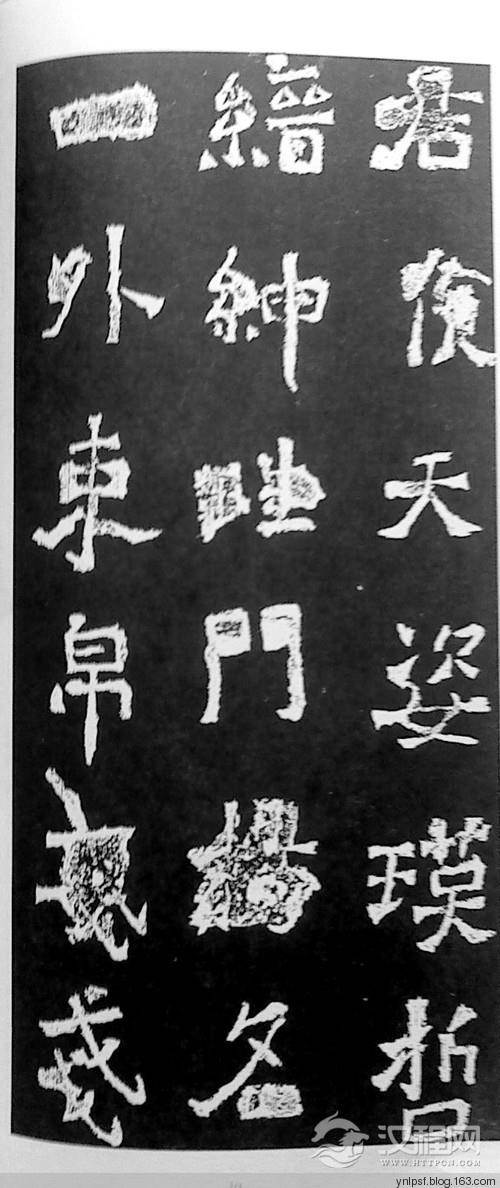 君天姿璞哲
縉紳門揚名
一外東帛
汉程网
WWW.HTTPCN.COM
ynlpsf.blog.163.com